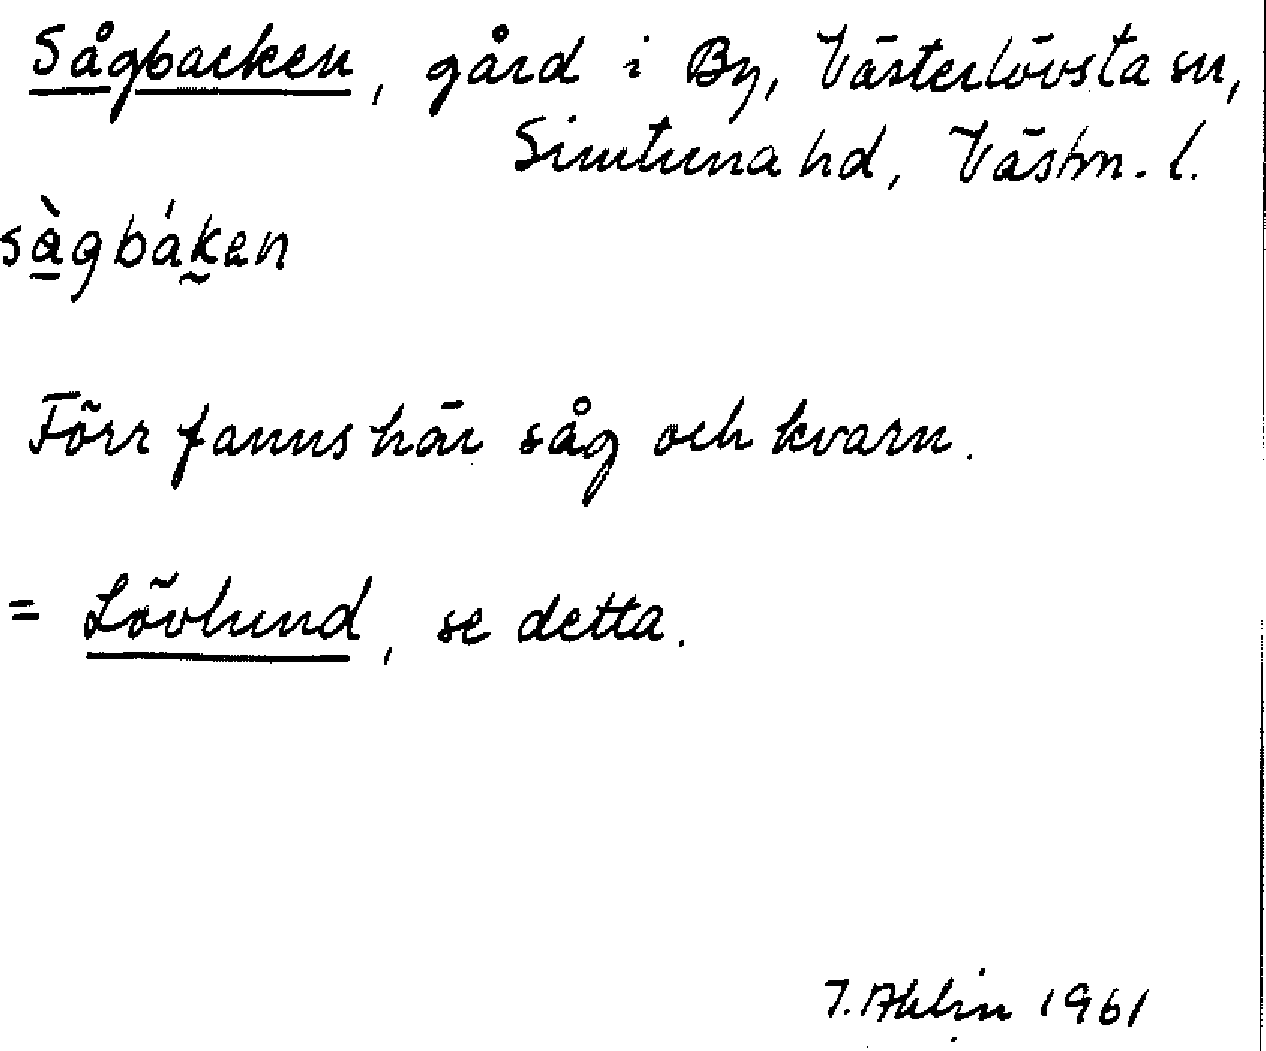 Sågbacken, gård i By, Västerlövsta sn,
Simtuna hd, Västm. l.
sàgbáken
Förr fanns här såg och kvarn.
= Lövlund, se detta.
J. Ahlin 1961